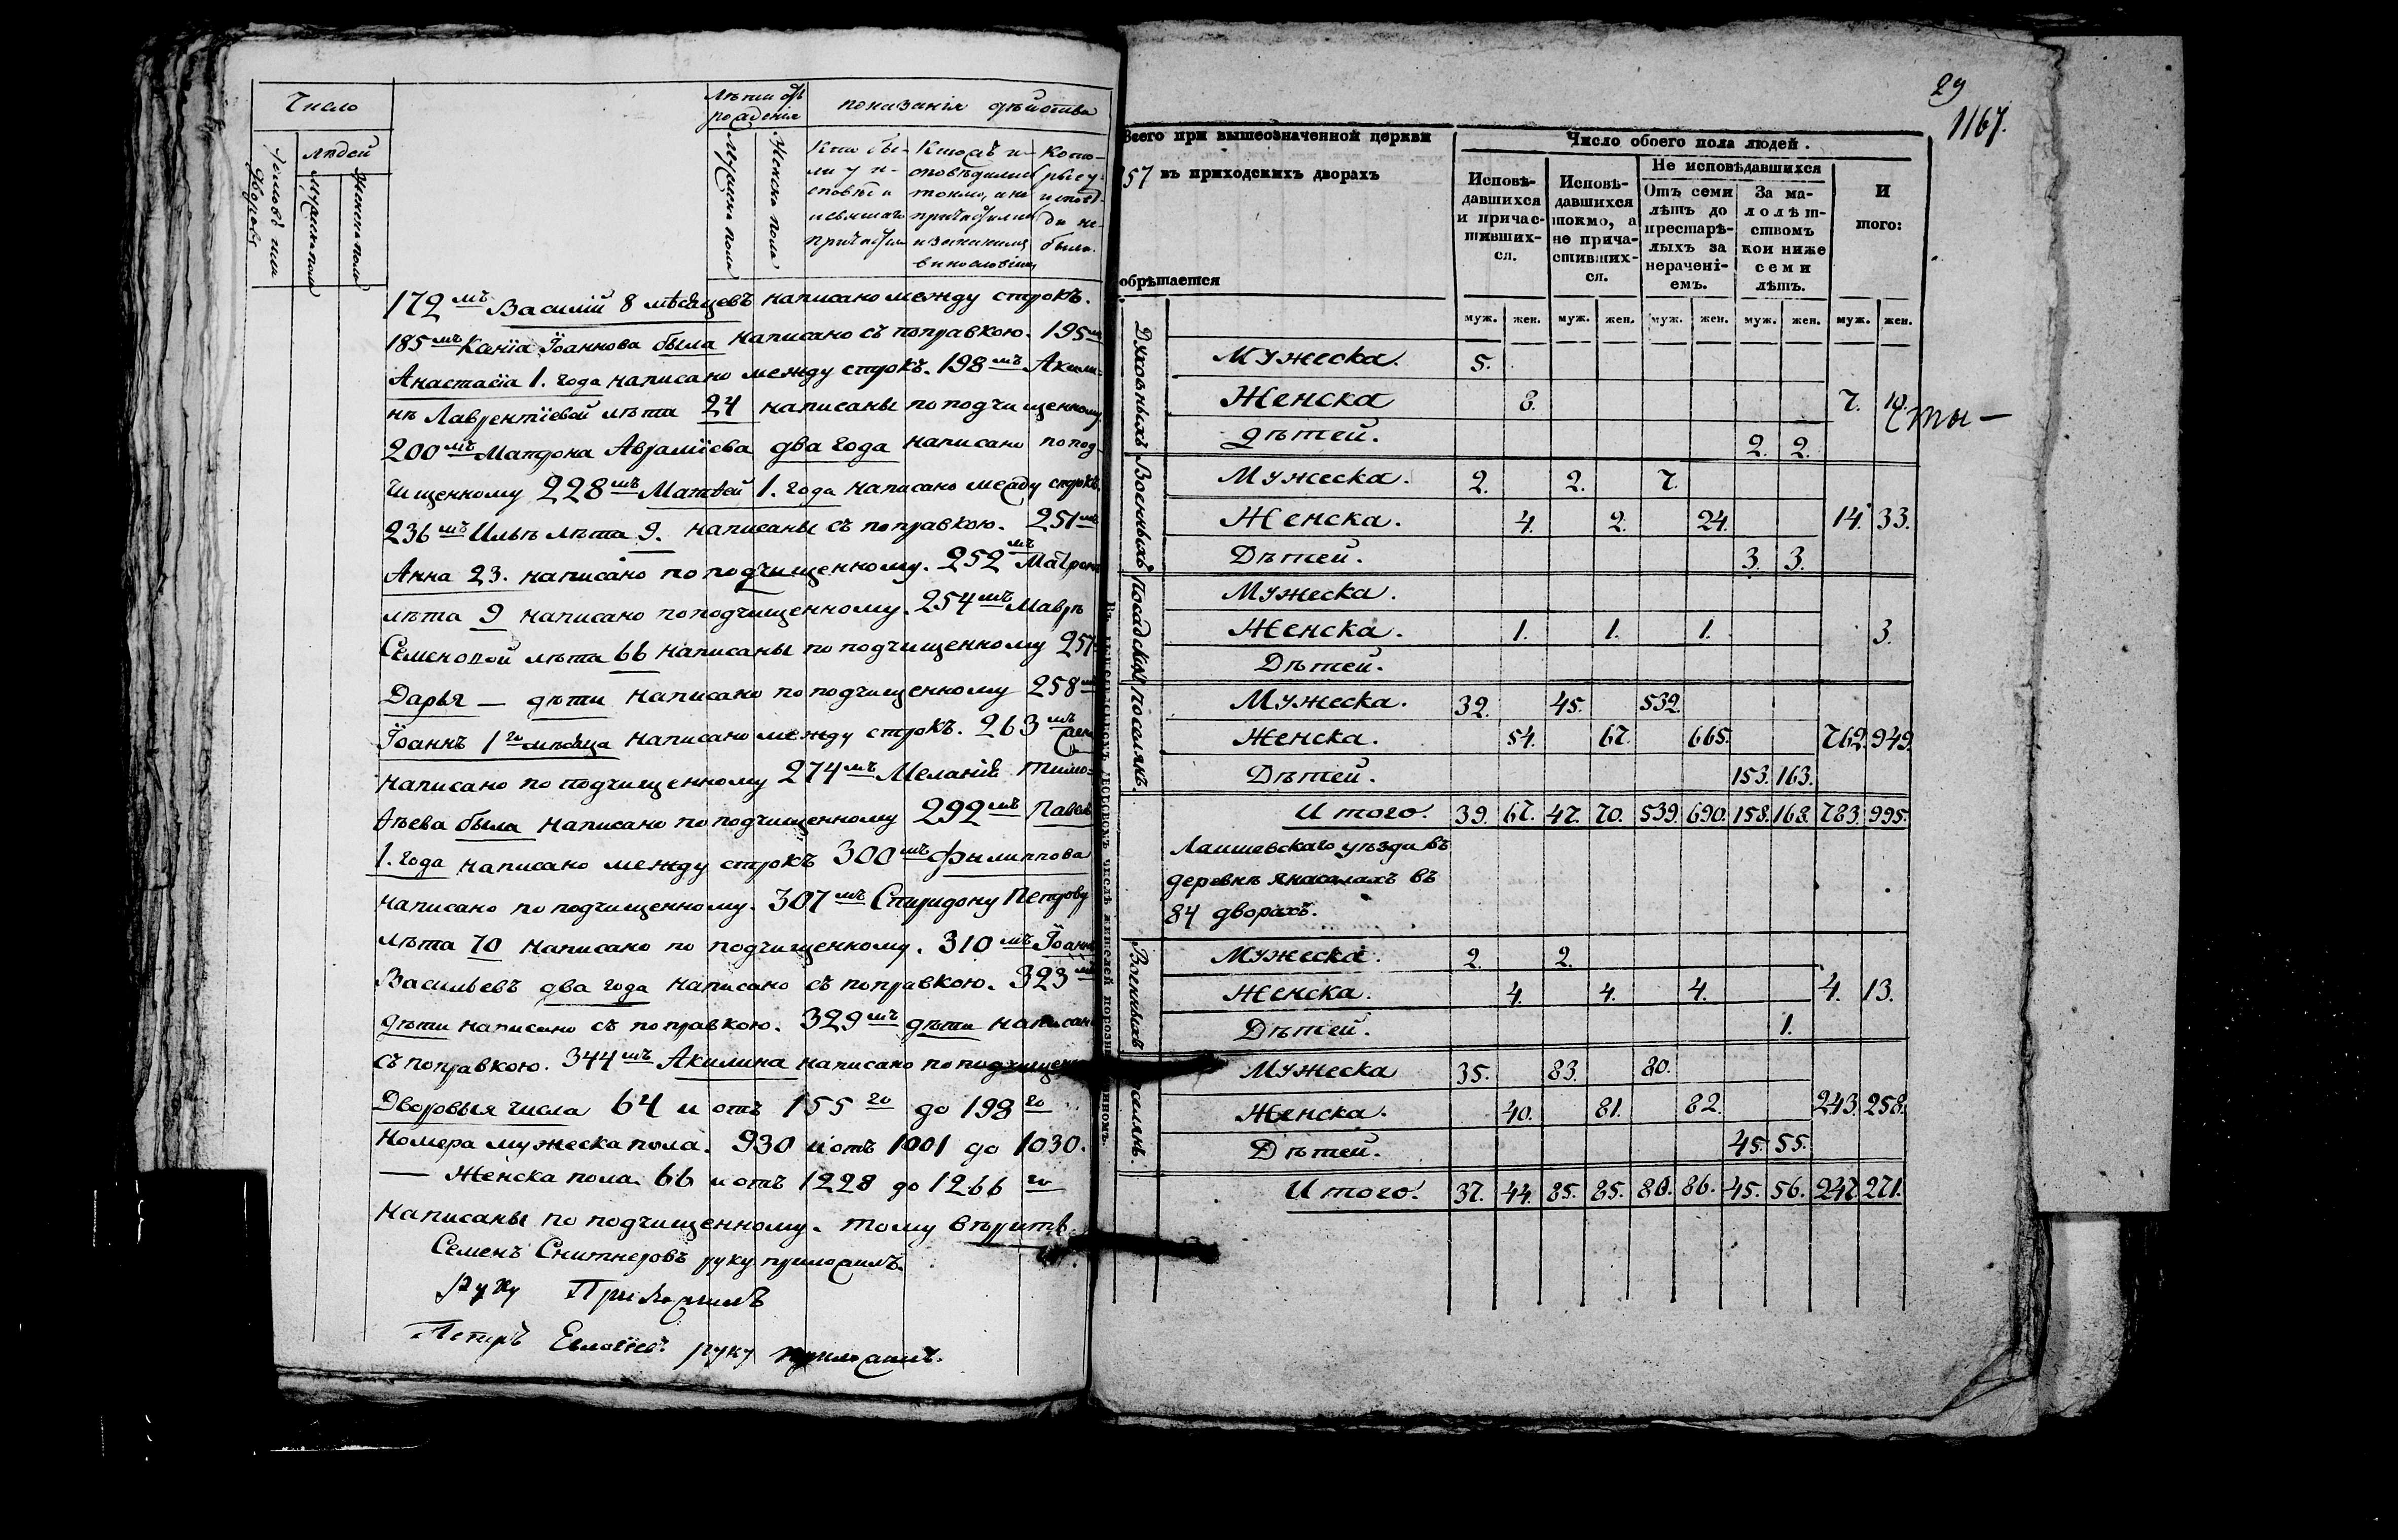 Число
Людей
Мужеска пола
Женска пола
Лѣты отъ рожденія
Мужеска пола
Женска пола
показанія дѣйства
Кто бы-
ли у и-
сповѣди
и святаго
причастія
Кто съ и-
сповѣдались
токмо, а не
причастились
и за какимъ
винословіемъ
Кото-
рые у
исповѣ-
ди не
были.
172 мъ Василій 8 мѣсяцевъ написано между строкъ.
185 мъ Ксенія Іоаннова была написано съ поправкою. 195 мъ
Анастасіа 1. года написано между строкъ. 198 мъ Акили-
нѣ Лаврентіевой лѣта 24 написаны по подчищенному
200 мъ Матрона Авраміева два года написано по под-
чищенному 228 мъ Матвей 1. года написано между строкъ.
236 мъ Ильѣ лѣта 9. написаны съ поправкою. 251 мъ
Анна 23. написано по подчищенному. 252 мъ Матрона
лѣта 9 написано по подчищенному. 254 мъ Маврѣ
Семеновой лѣта 66 написаны по подчищенному 257
Дарья — дѣти написано по подчищенному 258 мъ
Іоаннъ 1 го мѣсяца написано между строкъ. 263 мъ
написано по подчищенному 274 мъ Меланія Тимо-
ѳѣева была написано по подчищенному 292 мъ Павелъ
1. года написано между строкъ 300 мъ Филиппова
написано по подчищенному. 307 мъ Спиридону Петрову
лѣта 70 написано по подчищенному. 310 мъ Іоаннъ
Васильевъ два года написано съ поправкою. 323 мъ
дѣти написано съ поправкою. 329 мъ дѣти написано
съ поправкою. 344 мъ Акилина написано по подчищен
Дворовыя числа 64 и отъ 155 го до 198 го
Номера мужеска пола. 930 и отъ 1001 до 1030.
— Женска пола. 66 и отъ 1228 до 1266 го
Написаны по подчищенному. тому вѣрить
Семенъ Снитнеровъ руку приложилъ.
руку Приложилъ
Петръ руку приложилъ.
29
1167.
Всего при вышеозначенной церкви
257 въ приходскихъ дворахъ
обрѣтается
Число обоего пола людей.
Исповѣ-
давшихся
и причас-
тивших-
ся.
Исповѣ-
давшихся
токмо, а
не прича-
стивших-
ся.
Не исповѣдавшихся
Отъ семи
лѣтъ до
престарѣ-
лыхъ за
нерачені-
емъ.
За ма-
лолѣт-
ствомъ
кои ниже
семи
лѣтъ.
И
того:
муж. жен. муж. жен. муж. жен. муж. жен. муж. жен.
Духовныхъ
Мужеска. 5.
Женска 8. 7. 10.
Дѣтей. 2. 2.
сты—
Военныхъ
Мужеска. 2. 2. 7.
Женска. 4. 2. 24. 14. 33.
Дѣтей. 3. 3.
Посадскихъ
Мужеска.
Женска. 1. 1. 1. 3.
Дѣтей.
поселянъ.
Мужеска. 32. 45. 532.
Женска. 54. 67. 665. 762. 949.
Дѣтей. 153. 163.
Итого. 39. 67. 47. 70. 539. 690. 158. 168. 783. 995.
Лаишевскаго уѣзда въ
деревнѣ Янасалахъ въ
84 дворахъ.
Военныхъ
Мужеска. 2. 2.
Женска. 4. 4. 4. 4. 13.
Дѣтей. 1.
селянъ.
Мужеска 35. 83. 80.
Женска. 40. 81. 82. 243. 258.
Дѣтей. 45. 55.
Итого. 37. 44. 85. 85. 80. 86. 45. 56. 247. 271.